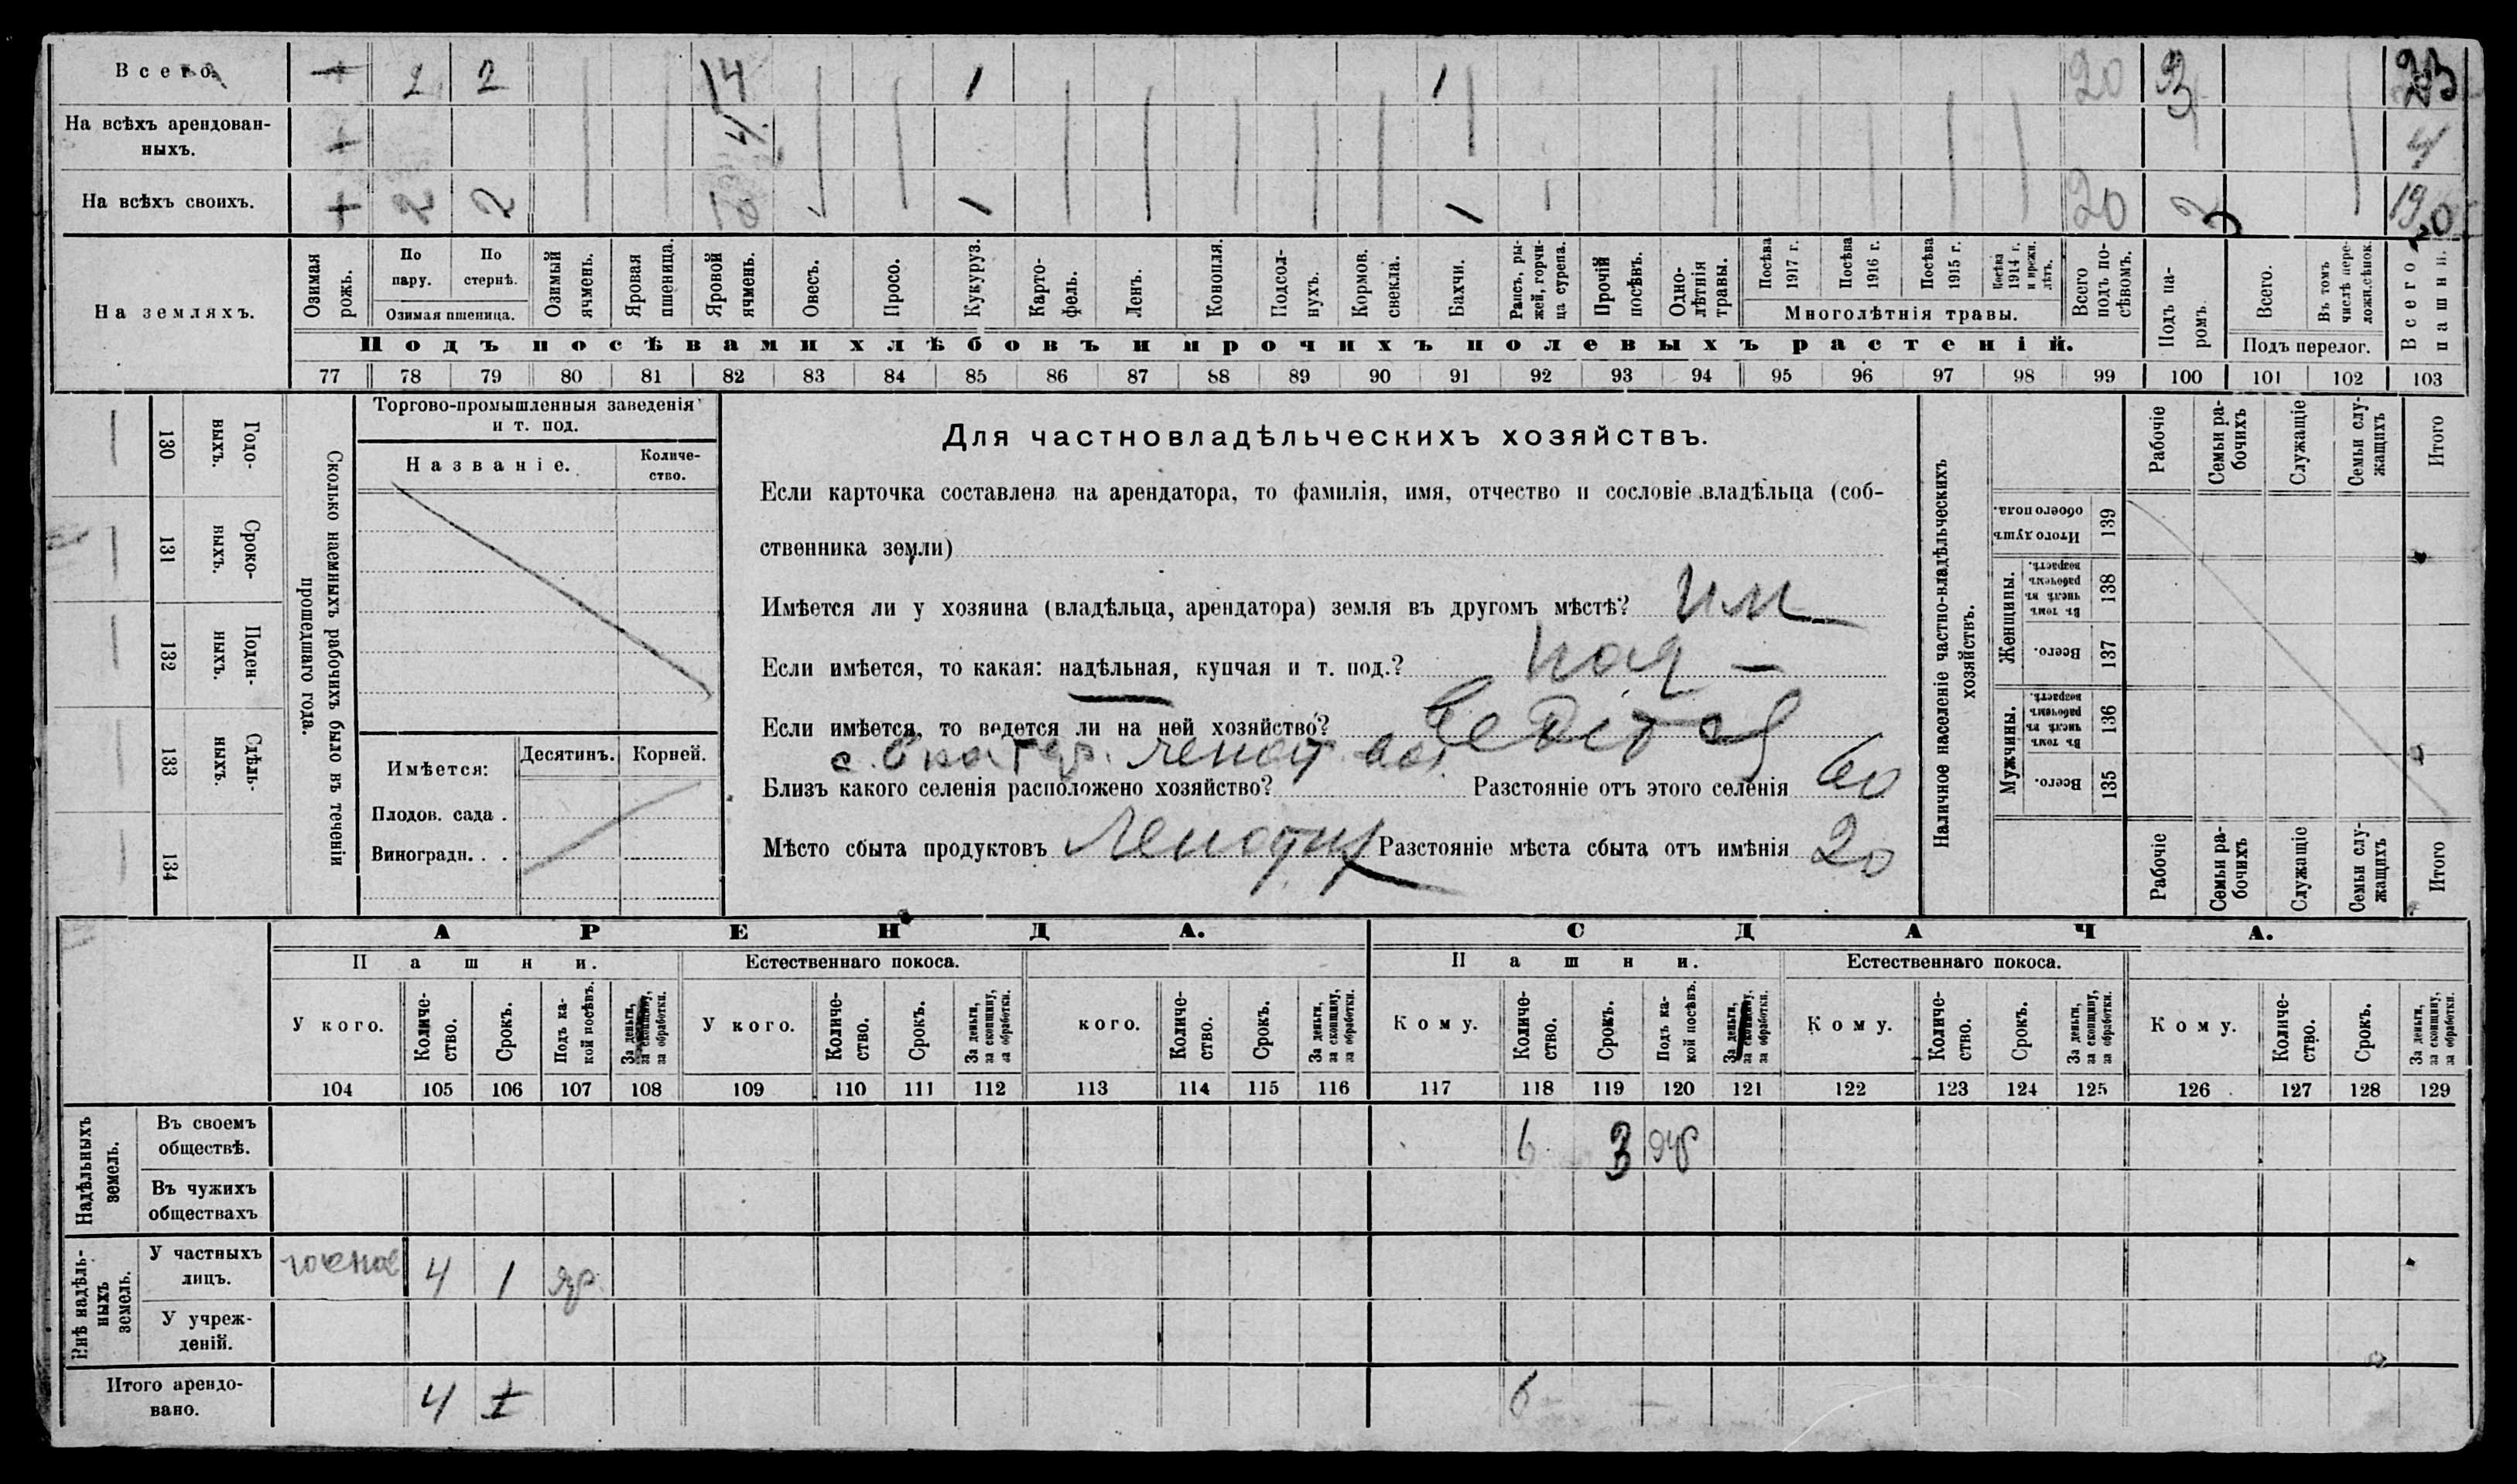 Всего. + 2 2 14 1 1 20 3 23
На всѣхъ арендован-
ныхъ. + 4 4
На всѣхъ своихъ. + 2 2 10 1 1 20 19
На земляхъ.
Озимая рожь.
По пару.
По стернѣ.
Озимая пшеница.
Озимый ячмень.
Яровая пшеница.
Яровой ячмень.
Овесъ.
Просо.
Кукуруз.
Карто-
фель.
Ленъ.
Конопля.
Подсол-
нухъ.
Кормов.
свекла.
Бахчи.
Рапсъ, ры-
жей, горчи-
ца сурепа.
Прочій
посѣвъ.
Одно-
лѣтнія
травы.
Посѣва
1917 г.
Посѣва
1916 г.
Посѣва
1915 г.
Посѣва
1914 г.
и прежн.
лѣтъ.
Многолѣтнія травы.
Всего
подъ по-
сѣвомъ.
Подъ па-
ромъ.
Всего.
Въ томъ
числѣ пере-
ложн. сѣнок.
Подъ перелог.
Всего
пашни.
Подъ посѣвами хлѣбовъ и прочихъ полевыхъ растеній.
77 78 79 80 81 82 83 84 85 86 87 88 89 90 91 92 93 94 95 96 97 98 99 100 101 102 103
Годо-
выхъ.
130
Сроко-
ныхъ.
131
Поден-
ныхъ.
132
Сдѣль-
ныхъ.
133
134
Сколько наемныхъ рабочихъ было въ теченіи
прошедшаго года.
Торгово-промышленныя заведенія
и т. под.
Названіе.
Количе-
ство.
Имѣется:
Десятинъ.
Корней.
Плодов. сада .
Виноградн. . .
Для частновладѣльческихъ хозяйствъ.
Если карточка составлена на арендатора, то фамилія, имя, отчество и сословіе владѣльца (соб-
ственника земли)
Имѣется ли у хозяина (владѣльца, арендатора) земля въ другомъ мѣстѣ? им
Если имѣется, то какая: надѣльная, купчая и т. под.? над
Если имѣется, то ведется ли на ней хозяйство?
Близъ какого селенія расположено хозяйство? Разстояніе отъ этого селенія
Мѣсто сбыта продуктовъ Разстояніе мѣста сбыта отъ имѣнія 20
Наличное населеніе частно-владѣльческихъ
хозяйствъ.
Рабочіе
Семьи ра-
бочихъ
Служащіе
Семьи слу-
жащихъ
Итого
Итого душъ
обоего пола.
139
Женщины.
Въ томъ
числѣ въ
рабочемъ
возрастѣ.
138
Всего.
137
Мужчины.
Въ томъ
числѣ въ
рабочемъ
возрастѣ.
136
Всего.
135
Рабочіе
Семьи ра-
бочихъ
Служащіе
Семьи слу-
жащихъ
Итого
АРЕНДА. СДАЧА.
Пашни. Естественнаго покоса. Пашни. Естественнаго покоса.
У кого.
Количе-
ство.
Срокъ.
Подъ ка-
кой посѣвъ.
За деньги,
за скопщину,
за обработки.
У кого.
Количе-
ство.
Срокъ.
За деньги,
за скопщину,
за обработки.
кого.
Количе-
ство.
Срокъ.
За деньги,
за скопщину,
за обработки.
Кому.
Количе-
ство.
Срокъ.
Подъ ка-
кой посѣвъ.
За деньги,
за скопщину,
за обработки.
Кому.
Количе-
ство.
Срокъ.
За деньги,
за скопщину,
за обработки.
Кому.
Количе-
ство.
Срокъ.
За деньги,
за скопщину,
за обработки.
104 105 106 107 108 109 110 111 112 113 114 115 116 117 118 119 120 121 122 123 124 125 126 127 128 129
Надѣльныхъ
земель.
Въ своемъ
обществѣ. 6 3 яр
Въ чужихъ
обществахъ
Внѣ надѣль-
ныхъ
земель.
У частныхъ
лицъ. 4 1 яр.
У учреж-
деній.
Итого арендо-
вано. 4 6